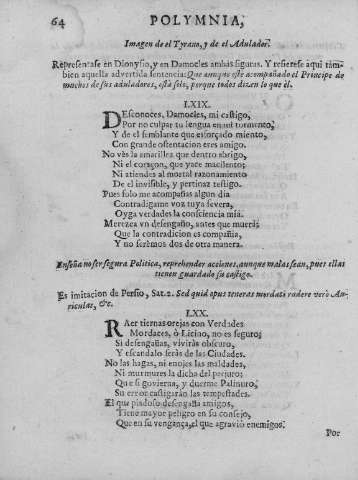 64 POLYMNIA,
Imagen de el Tyrano, y de el Adulador.
Represéntase en Dionysio, y en Damocles ambas figuras. Y refierese aqui tam-
bien aquella advertida sentencia: Que aunque esté acompañado el Principe de
muchos de sus aduladores, está solo, porque todos dizen lo que èl.
LXIX.
DEsconoces, Damocles, mi castigo,
Por no culpar tu lengua en mi tormento,
Y de el semblante que esforçado miento,
Con grande ostentacion eres amigo.
No vès la amarillez que dentro abrigo,
Ni el coraçon, que yace macilento;
Ni atiendes al mortal razonamiento
De el invisible, y pertinaz testigo.
Pues solo me acompañas algun dia
Contradigame voz tuya severa,
Oyga verdades la consciencia mia.
Merezca vn desengaño, antes que muera:
Que la contradicion es compañia,
Y no serèmos dos de otra manera.
Enseña no ser segura Politica, reprehender acciones, aunque malas sean, pues ellas
tienen guardado su castigo.
Es imitacion de Persio, Sat. 2. Sed quid opus teneras mordaci radere vero Au-
riculas, &c.
LXX.
RAer tiernas orejas con Verdades
Mordaces, ò Licino, no es seguro;
Si desengañas, vivirás obscuro,
Y escandalo serás de las Ciudades.
No las hagas, ni enojes las maldades,
Ni murmures la dicha del perjuro;
Que si govierna, y duerme Palinuro,
Su error castigarán las tempestades.
El que piadoso desengaña amigos,
Tiene mayor peligro en su consejo,
Que en su vengança, el que agravió enemigos.
Por